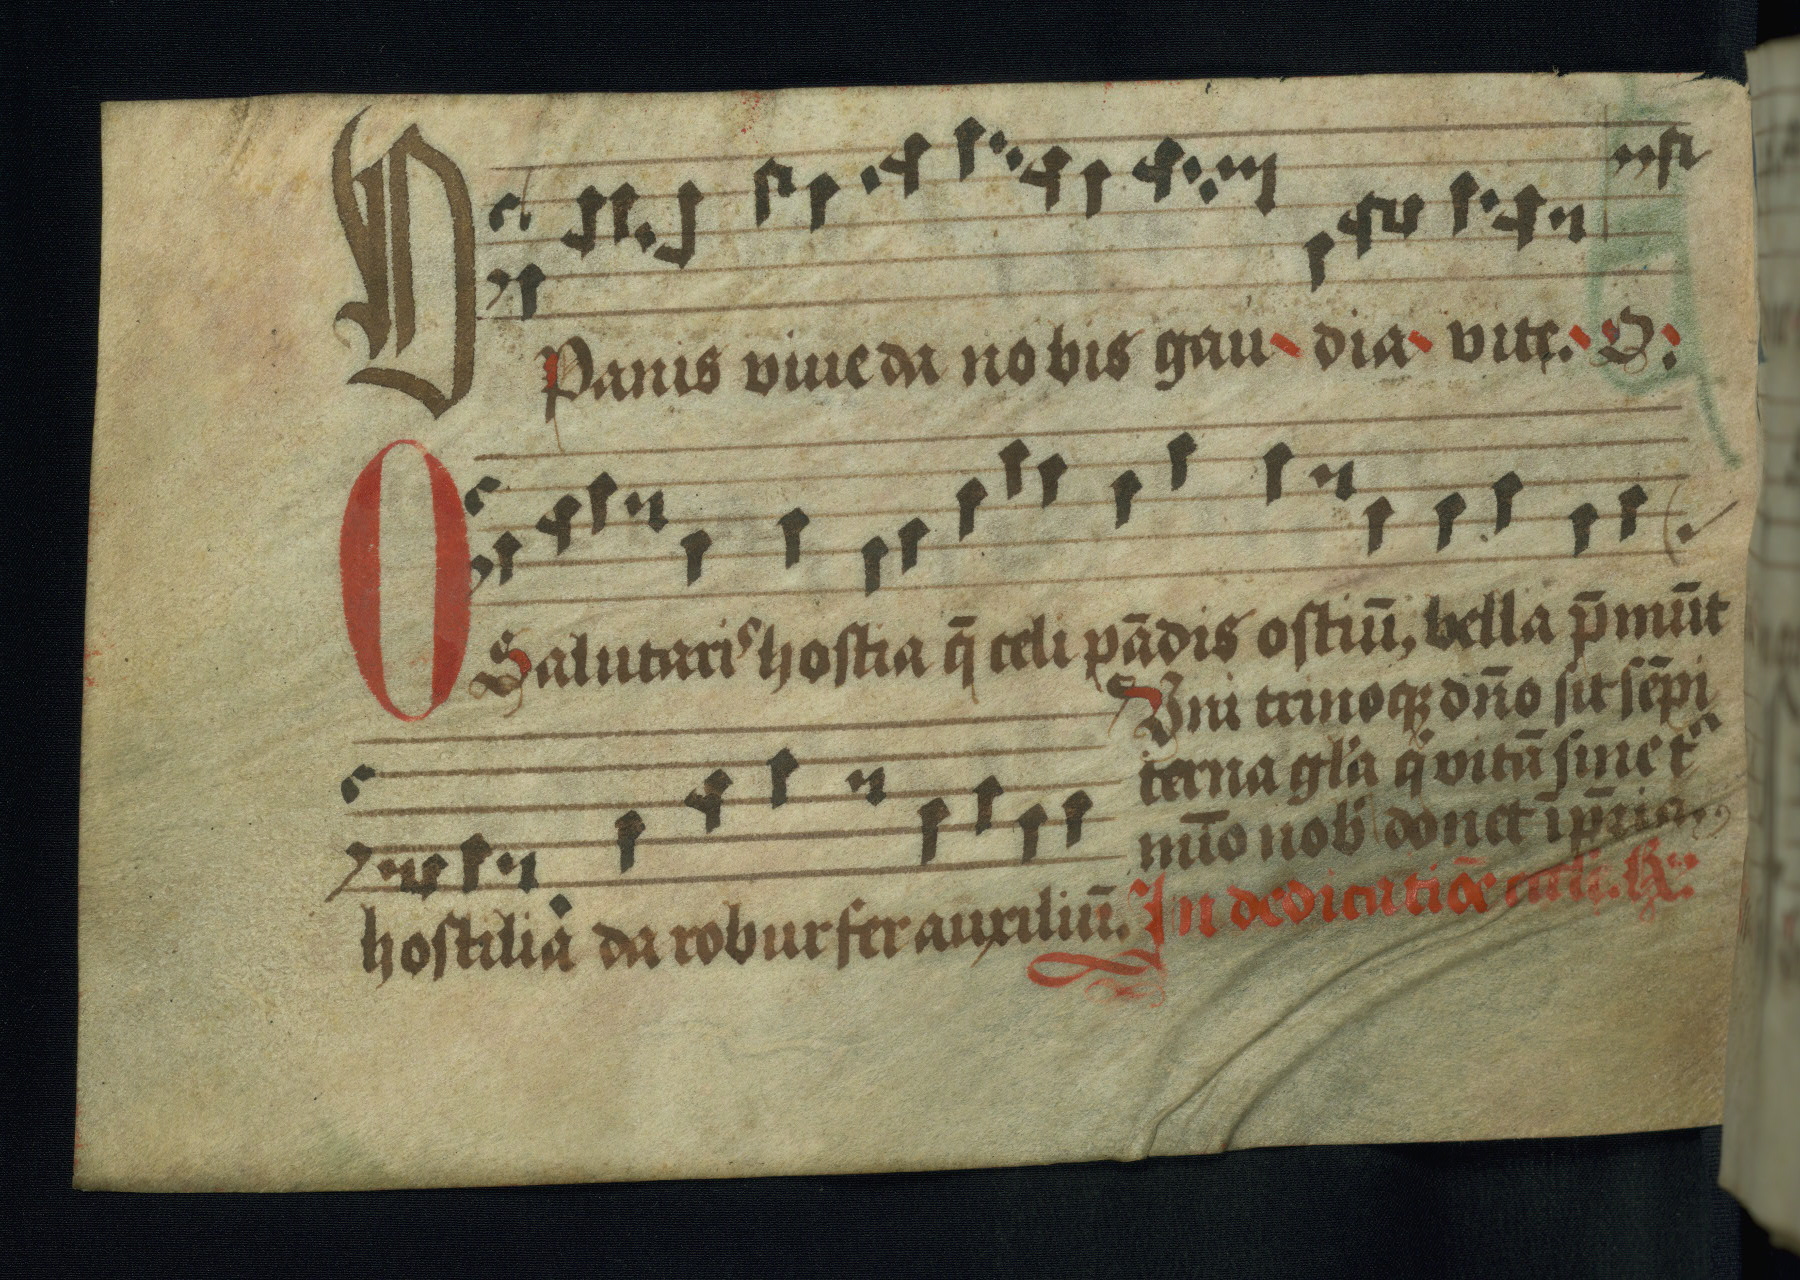 O Panis viue da nobis gau dia vite. O:
O Salutaris hostia q̄ celi pādis ostiū, bella p̄mūt
Vni trinoqꝫ dn̄o sit sēpi
terna gl̄a q vitā sine t
mīo nob donet ī pr̄ia.
hostilia da robur fer auxiliū. In dedicatiōe